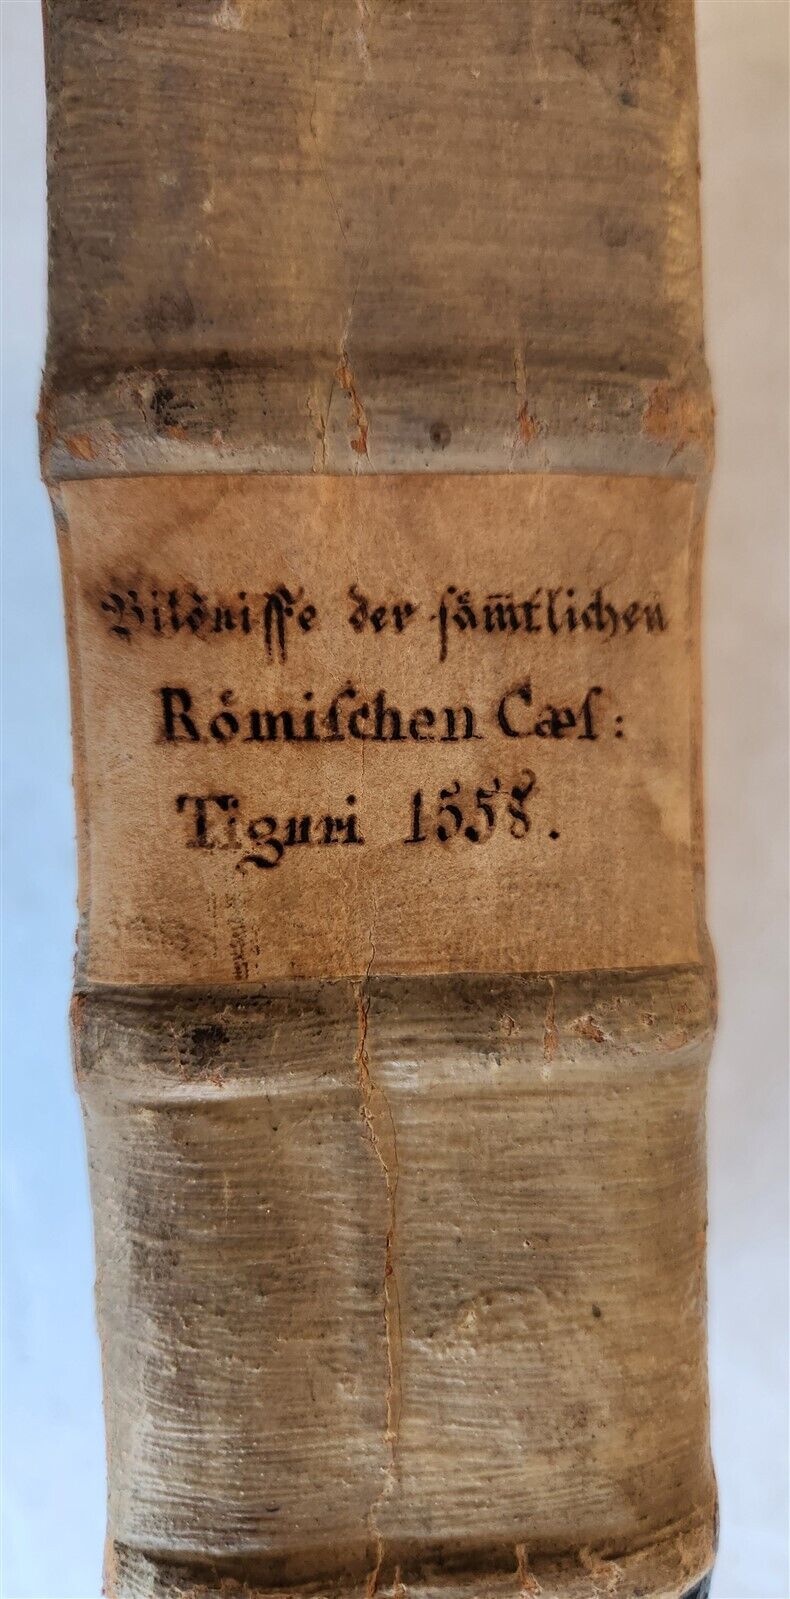 Bildniſſe der ſäm̅tlichen
Römiſchen Cæſ:
Tiguri 1558.